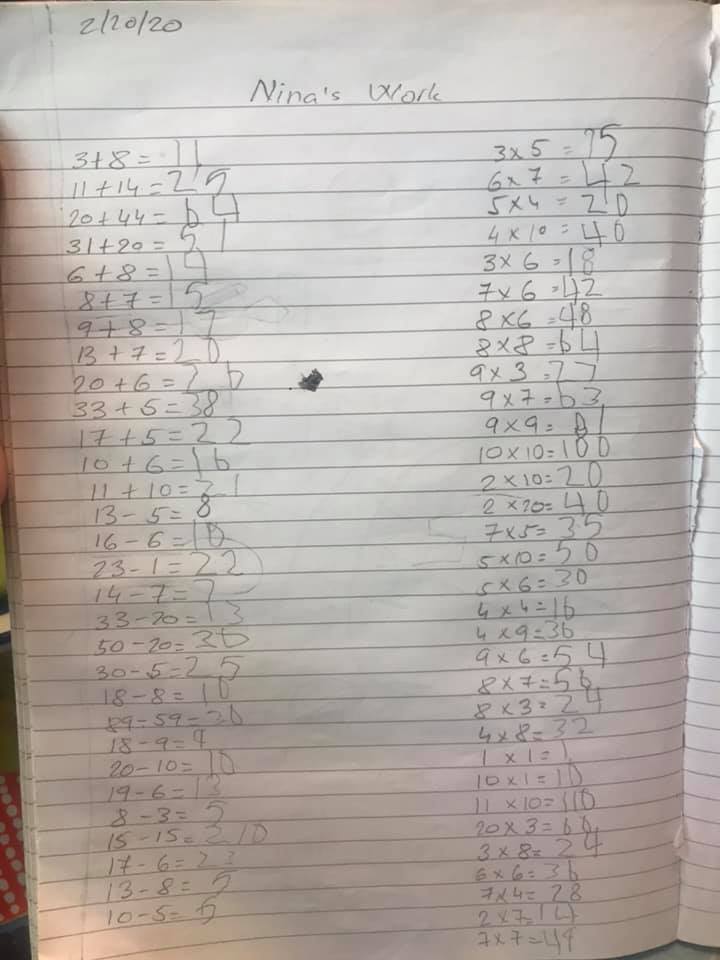 2/20/20
Nina's Work
3+8=11
11+14=25
20+44=64
31+20=51
6+8=14
8+7=15
9+8=17
13+7=20
20+6=26
33+5=38
17+5=22
10+6=16
11+10=21
13-5=8
16-6=10
23-1=22
14-7=7
33-20=13
50-20=30
30-5=25
18-8=10
89-59=30
18-9=9
20-10=10
19-6=13
8-3=5
15-15=210
17-6=23
13-8=5
10-5=5
3×5=15
6×7=42
5×4=20
4×10=40
3×6=18
7×6=42
8×6=48
8×8=64
9×3=27
9×7=63
9×9=81
10×10=100
2×10=20
2×20=40
7×5=35
5×10=50
5×6=30
4×4=16
4×9=36
9×6=54
8×7=56
8×3=24
4×8=32
1×1=1
10×1=10
11×10=110
20×3=60
3×8=24
6×6=36
7×4=28
2×7=14
7×7=49